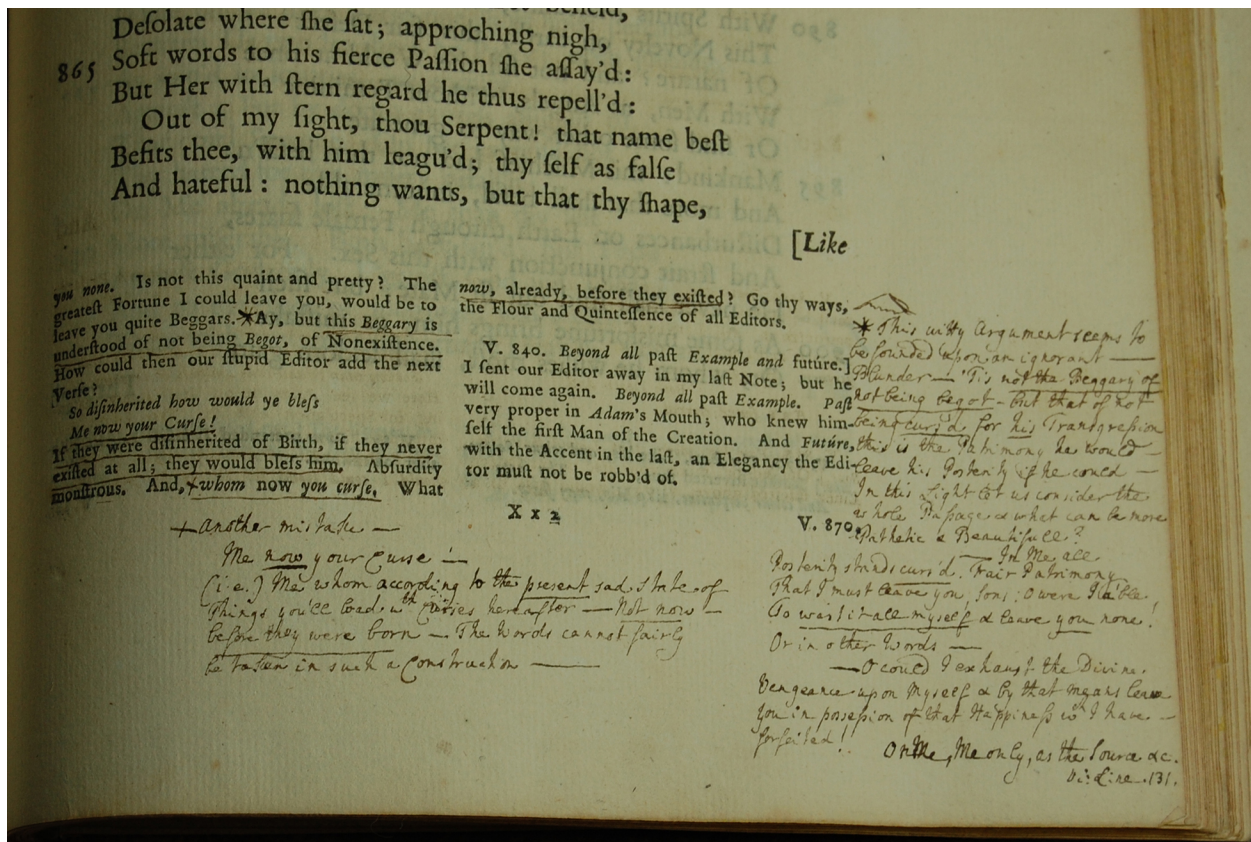 Deſolate where ſhe ſat; approching nigh,
865 Soft words to his fierce Paſſion ſhe aſſay'd:
But Her with ſtern regard he thus repell'd:
Out of my ſight, thou Serpent! that name beſt
Befits thee, with him leagu'd; thy ſelf as falſe
And hateful: nothing wants, but that thy ſhape,
[Like
you none. Is not this quaint and pretty? The
greateſt Fortune I could leave you, would be to
leave you quite Beggars. Ay, but this Beggary is
underſtood of not being Begot, of Nonexiſtence.
How could then our ſtupid Editor add the next
Verſe?
So diſinherited how would ye bleſs
Me now your Curſe!
If they were diſinherited of Birth, if they never
exiſted at all; they would bleſs him. Abſurdity
monſtrous. And, + whom now you curſe, What
now, already, before they exiſted? Go thy ways,
the Flour and Quinteſſence of all Editors.
V. 840. Beyond all paſt Example and futúre.]
I ſent our Editor away in my laſt Note; but he
will come again. Beyond all paſt Example. Paſt
very proper in Adam's Mouth; who knew him-
ſelf the firſt Man of the Creation. And Futúre,
with the Accent in the laſt, an Elegancy the Edi-
tor muſt not be robb'd of.
X x 2
V. 870.
* This witty Argument seems to
be founded upon an ignorant —
Blunder — 'Tis not the Beggary of
not being begot — but that of not
being curs'd for his Transgression
this is the Patrimony he would —
leave his Posterity if he could —
In this Light let us consider the
whole Passage & what can be more
Pathetic & Beautifull?
— In Me all
Posterity stands curs'd. Fair Patrimony
That I must leave you, Sons; O were I able
To wast it all myself & leave you none!
Or in other Words —
— O could I exhaust the Divine
Vengeance upon Myself & by that means leave
you in possession of that Happiness wch I have —
forfeited!!
On Me, Me only, as the Source &c.
Vi: Line .131.
+ another mistake —
Me now your Curse! —
(i.e.) Me whom according to the present sad state of
Things you'll load wth Curses hereafter — Not now —
before they were born — The Words cannot fairly
be taken in such a Construction —